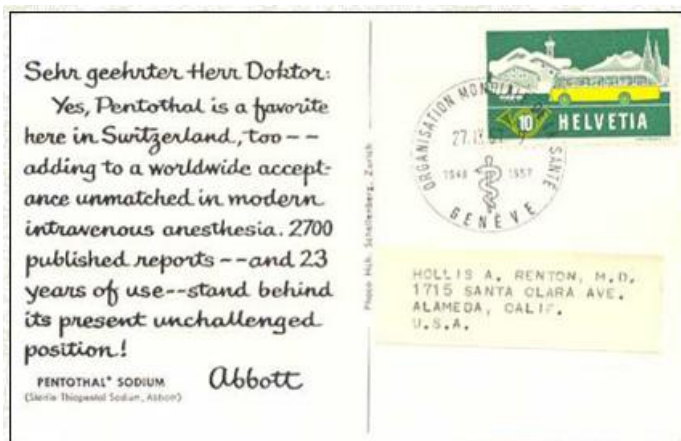 Sehr geehrter Herr Doktor:
Yes, Pentothal is a favorite
here in Switzerland, too--
adding to a worldwide accept-
ance unmatched in modern
intravenous anesthesia. 2700
published reports--and 23
years of use--stand behind
its present unchallenged
position!
PENTOTHAL® SODIUM
(Sterile Thiopental Sodium, Abbott)
Abbott
Schellenberg, Zurich
10 HELVETIA
ORGANISATION MONDIALE DE LA SANTÉ
1948 1957
GENÈVE
HOLLIS A. RENTON, M.D.
1715 SANTA CLARA AVE.
ALAMEDA, CALIF.
U.S.A.